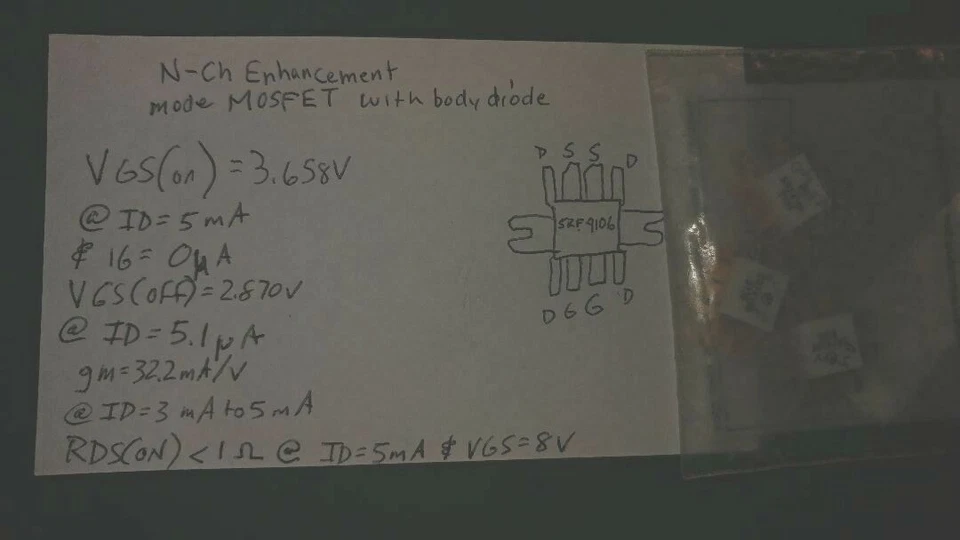 N-Ch Enhancement
mode MOSFET with body diode
VGS(on) = 3.658V
@ ID = 5mA
& IG = 0μA
VGS(OFF) = 2.870V
@ ID = 5.1μA
gm = 32.2mA/V
@ ID = 3mA to 5mA
RDS(ON) < 1Ω @ ID = 5mA & VGS = 8V
D S S D
SRF9106
D G G D